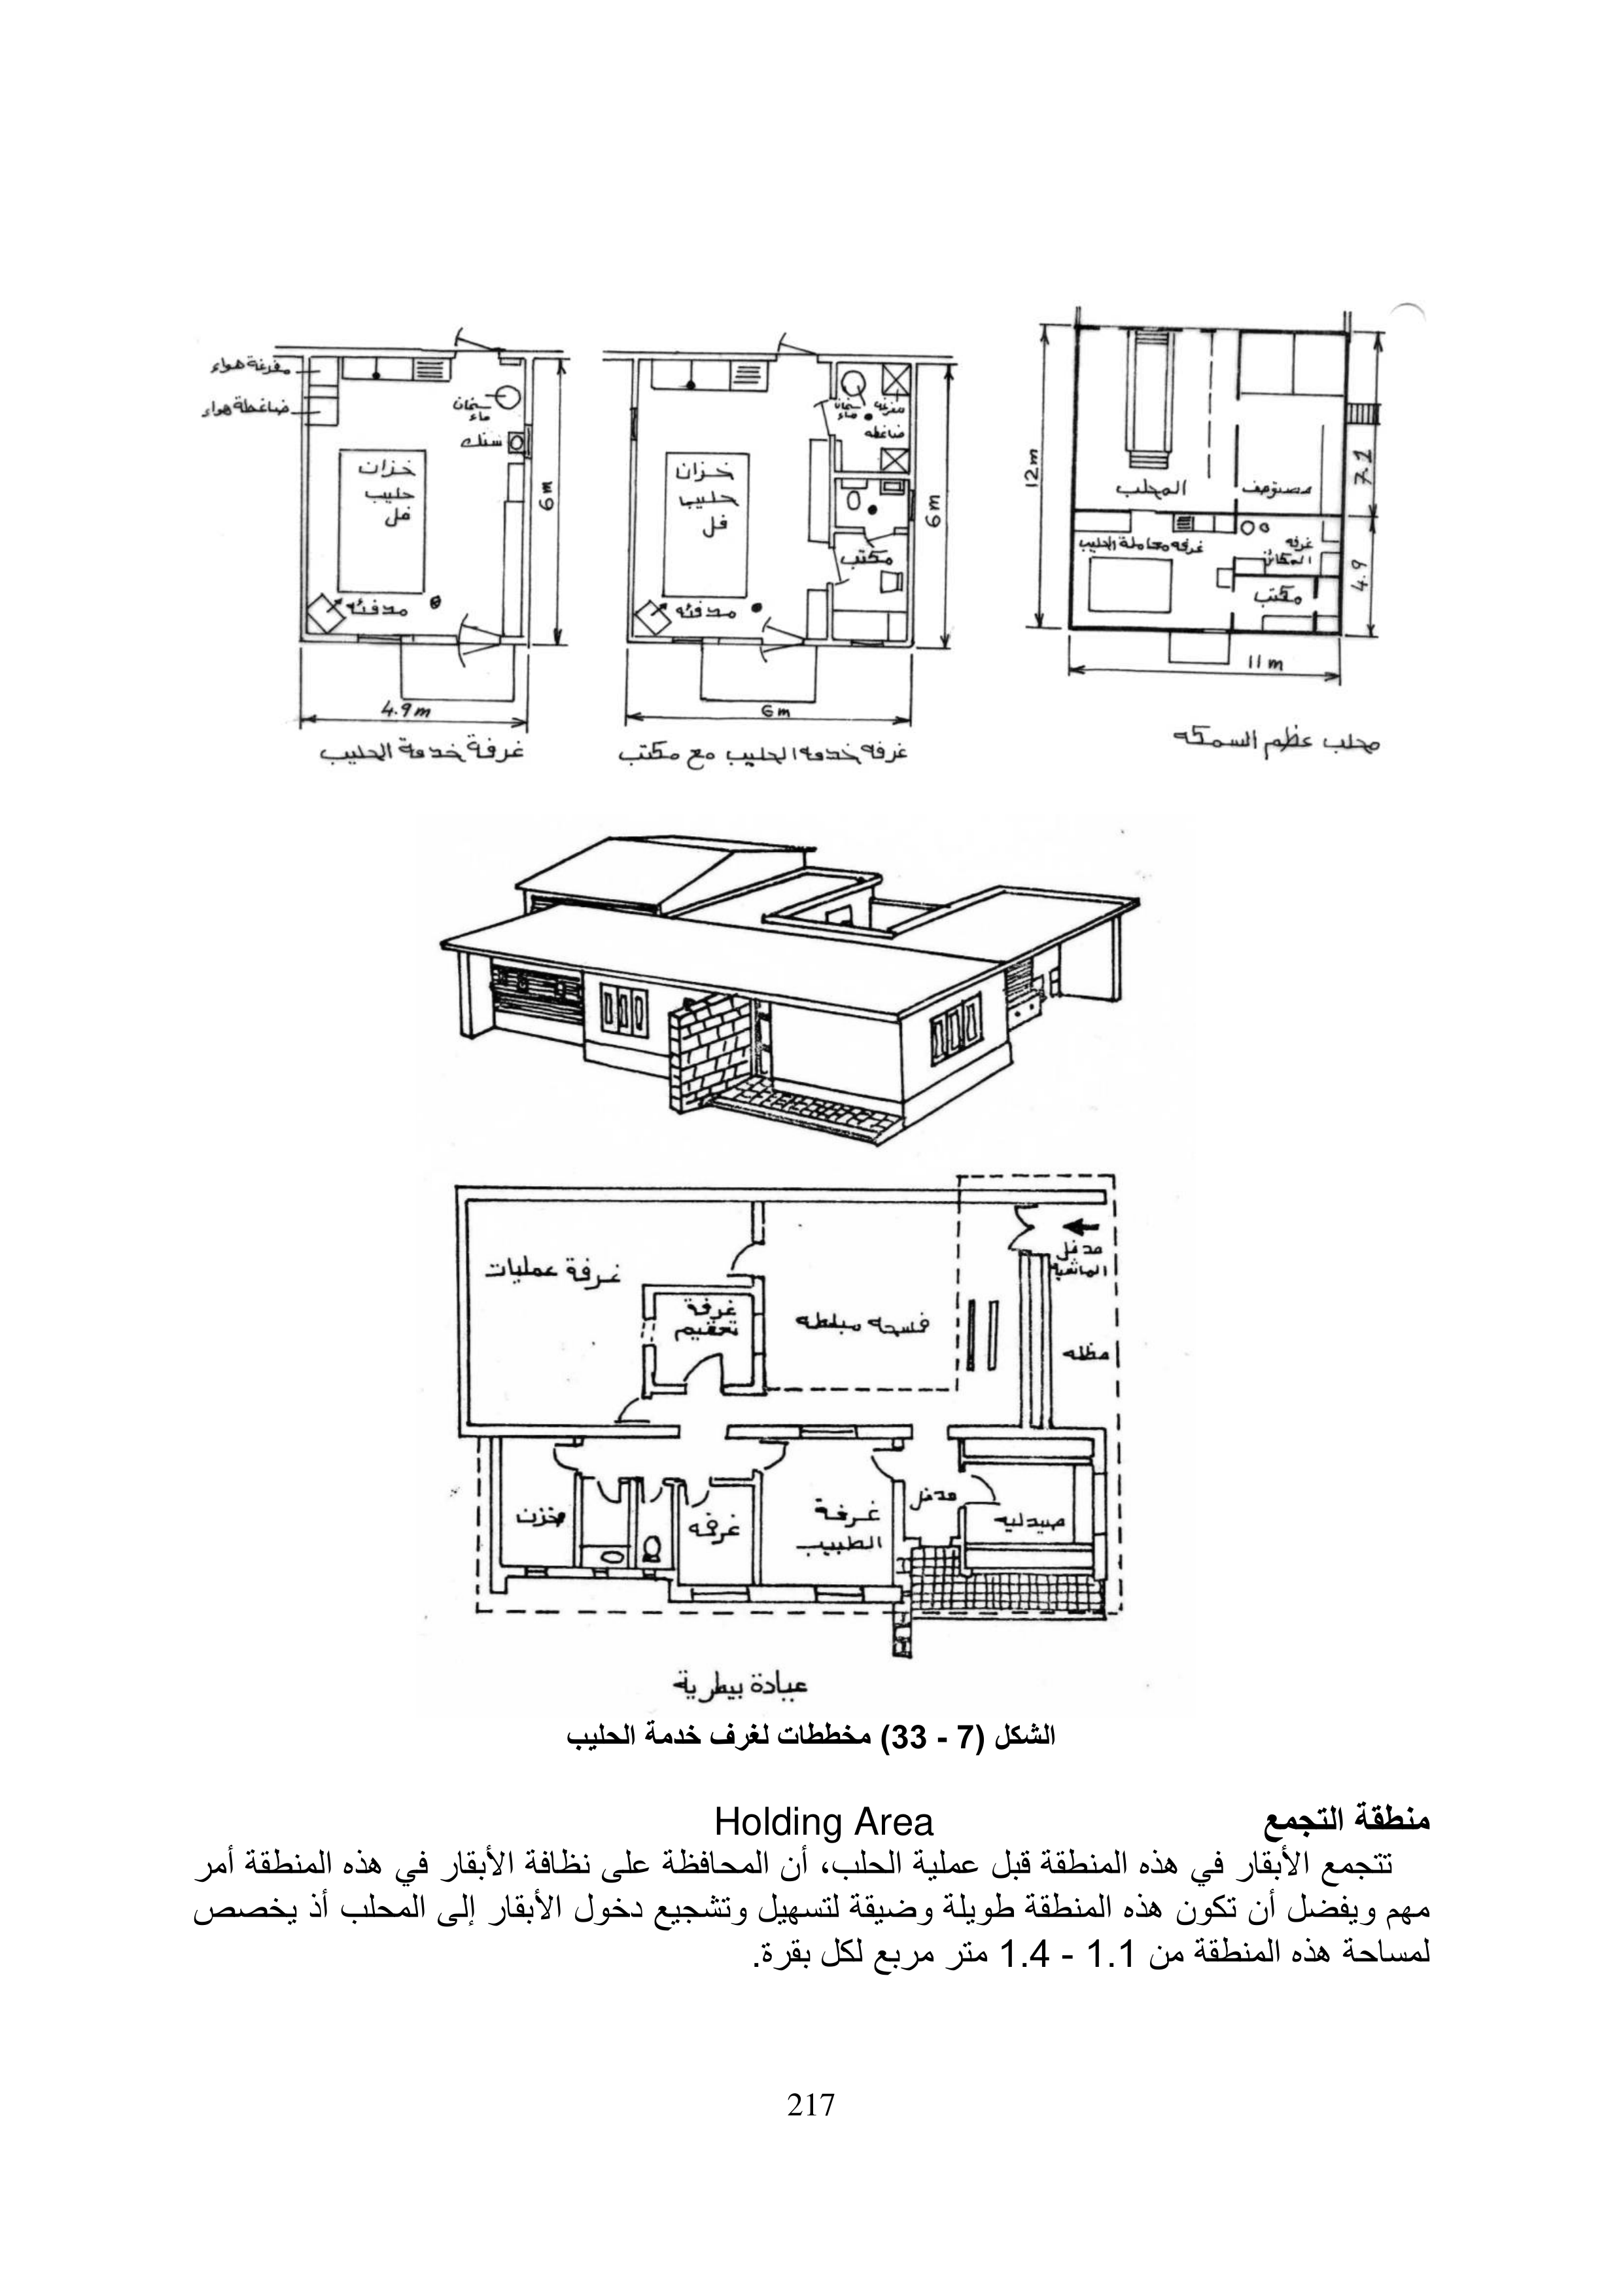 مفرغة هواء
ضاغطة هواء
سخان
ماء
سنك
خزان
حليب
فل
مدفئه
6m
4.9m
غرفة خدمة الحليب
سخان
ماء
مفرغه
ضاغطه
خزان
حليب
فل
مكتب
مدفئه
6m
6m
غرفه خدمه الحليب مع مكتب
12m
المحلب
7.1
غرفه معاملة الحليب
غرفه
المكائن
مكتب
4.9
11m
محلب عظم السمكه
مدخل
الماشيه
غرفة عمليات
غرفة
تعقيم
فسحه مبلطه
مظله
مخزن
غرفه
غرفة
الطبيب
مدخل
صيدليه
عيادة بيطرية
الشكل (7 - 33) مخططات لغرف خدمة الحليب
منطقة التجمع Holding Area
تتجمع الأبقار في هذه المنطقة قبل عملية الحلب، أن المحافظة على نظافة الأبقار في هذه المنطقة أمر
مهم ويفضل أن تكون هذه المنطقة طويلة وضيقة لتسهيل وتشجيع دخول الأبقار إلى المحلب أذ يخصص
لمساحة هذه المنطقة من 1.1 - 1.4 متر مربع لكل بقرة.
217